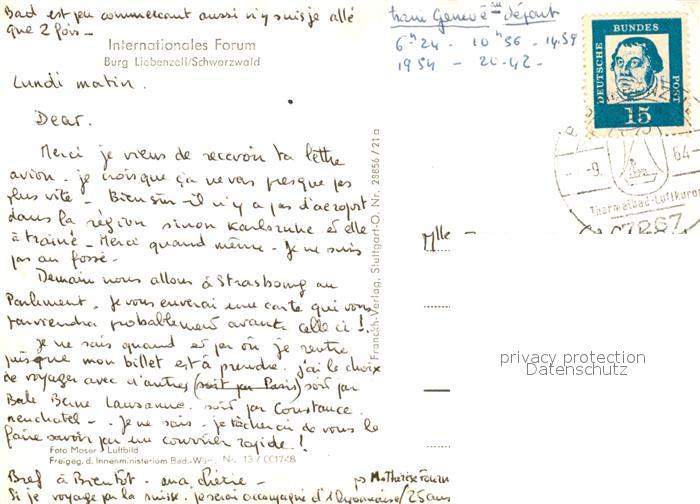 Bad est peu commercant aussi n'y suis je allé
que 2 fois -
Internationales Forum
Burg Liebenzell/Schwarzwald
Lundi matin.
Dear.
Merci je viens de recevoir ta lettre
avion. je crois que ça ne va presque pas
plus vite - Bien sûr il n'y a pas d'aeroport
dans la région sinon Karlsruhe et elle
a trainé - Merci quand même - Je ne suis
pas au fossé -
Demain nous allons à Strasbourg au
Parlement. Je vous enverai une carte qui vous
parviendra probablement avant celle ci !
Je ne sais quand et par où je rentre
puisque mon billet est à prendre. j'ai le choix
de voyager avec d'autres (soit par Paris) soit par
Bale Berne Lausanne. soit par Constance
neuchatel - Je ne sais - je tâcherai de vous le
faire savoir par un courrier rapide !
Foto Moser Luftbild
Freigeg. d. Innenministerium Bad.-Wü. Nr. 13/001748
Bref à Bientôt - ma chérie -
Si je voyage par la suisse. je serai accompagné d'1 lyonnaise/25 ans
Franckh-Verlag, Stuttgart-O. Nr. 28856/21a
Genevè départ
6h24 - 10h36 - 14.59
1954 - 20.42 -
DEUTSCHE
BUNDES
POST
15
-9. 64-
Thermalbad-Luftkurort
Mlle
privacy protection
Datenschutz